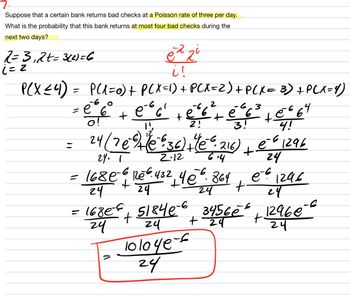 7.
Suppose that a certain bank returns bad checks at a Poisson rate of three per day.
What is the probability that this bank returns at most four bad checks during the
next two days?
λ=3, λt= 3(2)=6
i= 2
e^-λ λ^i
i!
P(X≤4) = P(X=0) + P(X=1) + P(X=2) + P(X=3) + P(X=4)
= e^-6 6^0 / 0! + e^-6 6^1 / 1! + e^-6 6^2 / 2! + e^-6 6^3 / 3! + e^-6 6^4 / 4!
= 24(7e^-6) / 24·1 + 12(e^-6·36) / 2·12 + 4(e^-6·216) / 6·4 + e^-6 1296 / 24
= 168e^-6 / 24 + 12e^-6·432 / 24 + 4e^-6·864 / 24 + e^-6 1296 / 24
= 168e^-6 / 24 + 5184e^-6 / 24 + 3456e^-6 / 24 + 1296e^-6 / 24
= 10104e^-6 / 24